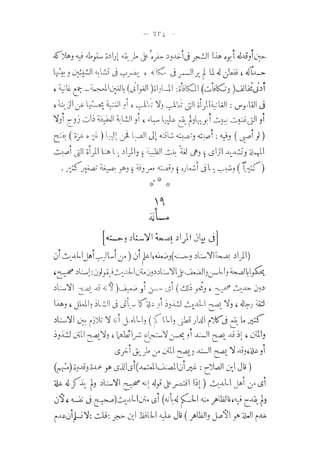 — ٢٣٤ —
حين أوقد له أبوه هذا الشجر فى أخدود حفره على طريقه إرادة سقوطه فيه وهلاكه
حسدا له، ففطن له لما لم ير السمر فى مكانه، يضرب فى تشابه الشيئين وبينهما
أدنى تخالف (وتكافأت) المكافأة: المساواة (الغوانى) بالغين المعجمة — جمع غانية،
فى القاموس: الغانية المرأة التى تُطلب ولا تَطلب، أو الغنية بحسنها عن الزينة،
أو التى غنيت ببيت أبويها ولم يقع عليها سباء، أو الشابة العفيفة ذات زوج أولا
(لو أصبى) وفيه: أصبته وتصبته شاقته إلى الصبا فحن إليها (عزة) بفتح
المهملة وتشديد الزاى؛ وهى لغة بنت الظبية؛ والمراد بها هنا المرأة التى أصبت
(كثيراً) وشبب بها فى أشعاره؛ وقصته معروفة؛ وهو بصيغة تصغير كثير.
***
١٩
مسألة
[فى بيان المراد بصحة الاسناد وحسنه]
(المراد بصحة الاسناد وحسنه) وضعفه، اعلم أن (من أساليب أهل الحديث أن
يحكموا بالصحة والحسن والضعف على الاسناد دون متن الحديث فيقولون: إسناد صحيح،
دون حديث صحيح، ونحو ذلك) أى حسن أو ضعيف (لأنه قد يصح الاسناد
لثقة رجاله، ولا يصح الحديث لشذوذ أو علة) كما سيأتى فى الشاذ والمعلل، وهذا
كثير ما يقع فى كلام الدار قطنى والحاكم) والحاصل أنه لا تلازم بين الاسناد
والمتن، إذ قد يصح السند أو يحسن لاستجماع شرائطهما، ولا يصح المتن لشذوذ
أو علة، وقد لا يصح السند ويصح المتن من طريق أخرى
(قال ابن الصلاح: غير أن المصنف المعتمد) أى الذى هو عمدة وقدوة (منهم)
أى من أهل الحديث (إذا اقتصر على قوله إنه صحيح الاسناد ولم يذكر له علة
ولم يقدح فيه، فالظاهر منه الحكم له بأنه) أى متن الحديث (صحيح فى نفسه، لأن
عدم العلة هو الأصل والظاهر) قال عليه الحافظ ابن حجر: قلت: لا نسلم أن عدم